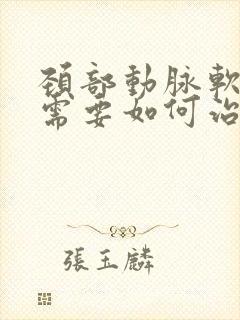 頚部動脉軟
需要如何治
張玉麟